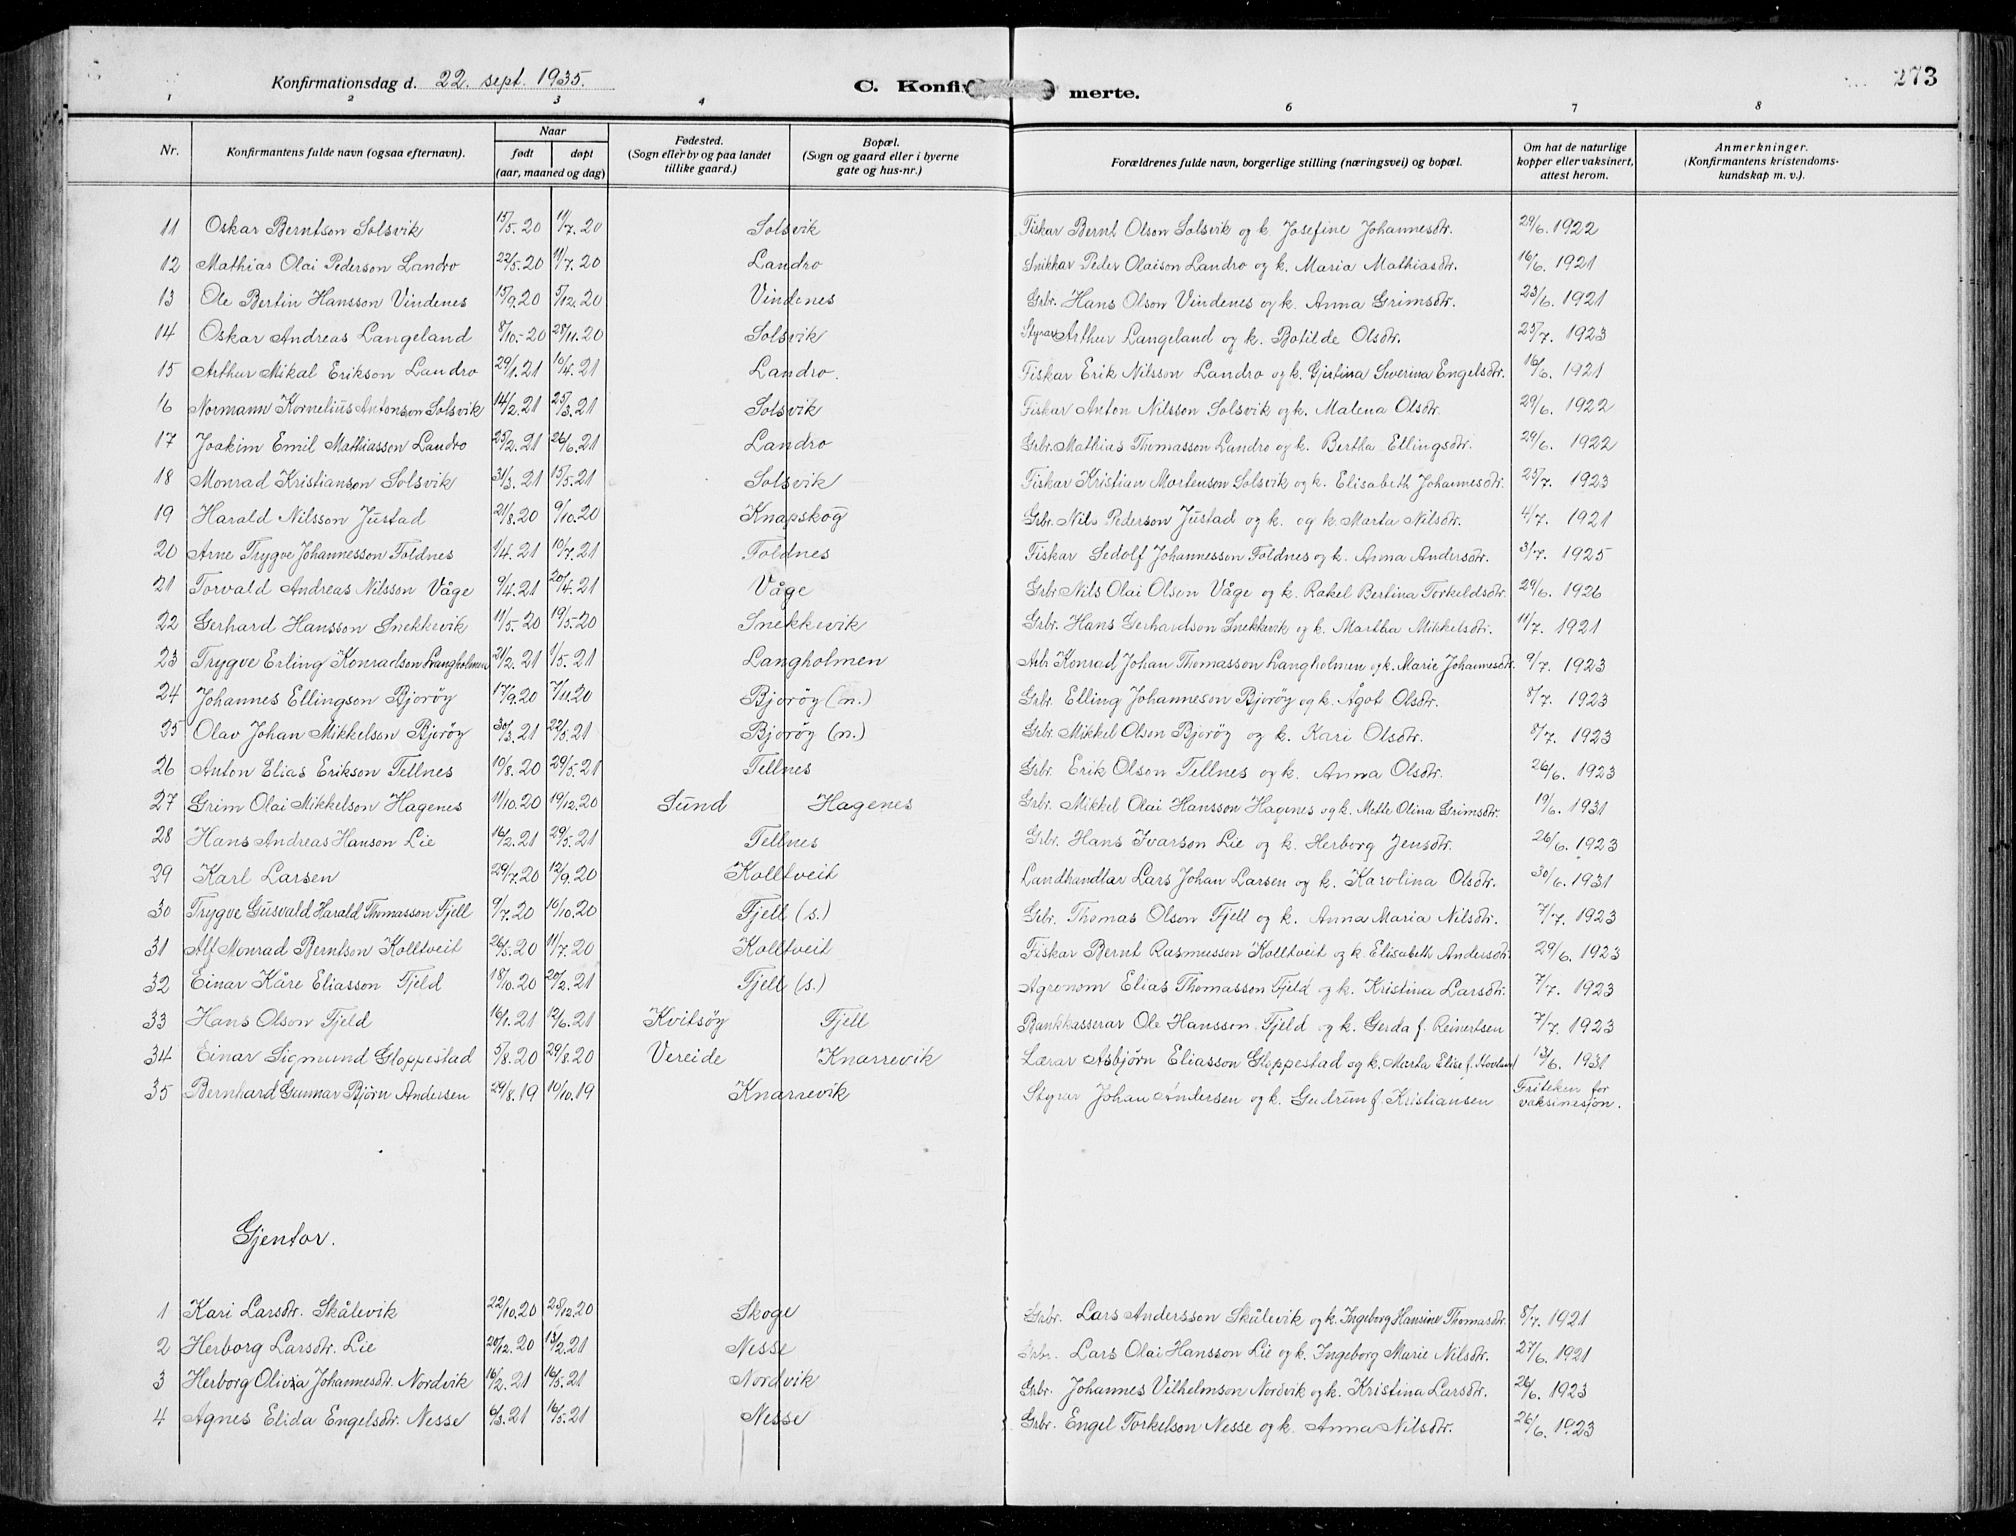 Konfirmationsdag d. 22. sept. 1935. C. Konfirmerte. 273
1 2 3 4 6 7 8
Nr. Konfirmantens fulde navn (ogsaa efternavn). Naar født døpt (aar, maaned og dag) Fødested. (Sogn eller by og paa landet tillike gaard.) Bopæl. (Sogn og gaard eller i byerne gate og hus-nr.) Forældrenes fulde navn, borgerlige stilling (næringsvei) og bopæl. Om hat de naturlige kopper eller vaksinert, attest herom. Anmerkninger. (Konfirmantens kristendomskundskap m. v.).
11 Oskar Berntson Solsvik 15/5. 20 11/7. 20 Solsvik Fiskar Bernt Olson Solsvik og k. Josefine Johannesdtr. 29/6. 1922
12 Mathias Olai Pederson Landro 22/5. 20 11/7. 20 Landro Snikkar Peder Olaison Landro og k. Maria Mathiasdtr. 16/6. 1921
13 Ole Bertin Hansson Vindenes 15/9. 20 5/12. 20 Vindenes Grbr. Hans Olson Vindenes og k. Anna Grimsdtr. 23/6. 1921
14 Oskar Andreas Langeland 8/10.-20 28/11. 20 Solsvik Styrar Arthur Langeland og k. Botilde Olsdtr. 25/7. 1923
15 Arthur Mikal Erikson Landro 29/1. 21 10/4. 21 Landro. Fiskar Erik Nilsson Landro og k. Gjertina Severina Engelsdtr. 16/6. 1921
16 Normann Kornelius Antonson Solsvik 14/2. 21 25/3. 21 Solsvik Fiskar Anton Nilsson Solsvik og k. Malena Olsdtr. 29/6. 1922
17 Joakim Emil Mathiasson Landro 25/2. 21 26/6. 21 Landro Grbr. Mathias Thomasson Landro og k. Bertha Ellingsdtr. 29/6. 1922
18 Monrad Kristianson Solsvik 31/3. 21 15/5. 21 Solsvik Fiskar Kristian Mortenson Solsvik og k. Elisabeth Johannesdtr. 25/7. 1923
19 Harald Nilsson Justad 21/8. 20 9/10. 20 Knapskog Grbr. Nils Pederson Justad og k. og k. Marta Nilsdtr. 4/7. 1921
20 Arne Trygve Johannesson Foldnes 1/4. 21 10/7. 21 Foldnes Fiskar Sedolf Johannesson Foldnes og k. Anna Andersdtr. 3/7. 1925
21 Torvald Andreas Nilsson Våge 9/4. 21 20/4. 21 Våge Grbr. Nils Olai Olson Våge og k. Rakel Bertina Torkeldsdtr. 29/6. 1926
22 Gerhard Hansson Snekkevik 11/5. 20 19/5. 20 Snekkevik Grbr. Hans Gerhardson Snekkevik og k. Martha Mikkelsdtr. 11/7. 1921
23 Trygve Erling Konradson Langholmen 21/2. 21 1/5. 21 Langholmen Arb. Konrad Johan Thomasson Langholmen og k. Marie Johannesdtr. 9/7. 1923
24 Johannes Ellingson Bjorøy 17/9. 20 7/11. 20 Bjorøy (n.) Grbr. Elling Johanneson Bjorøy og k. Ågot Olsdtr. 8/7. 1923
25 Olav Johan Mikkelson Bjorøy 30/3. 21 22/5. 21 Bjorøy (n.) Grbr. Mikkel Olson Bjorøy og k. Kari Olsdtr. 8/7. 1923
26 Anton Elias Erikson Tellnes 10/8. 20 29/5. 21 Tellnes Grbr. Erik Olson Tellnes og k. Anna Olsdtr. 26/6. 1923
27 Grim Olai Mikkelson Hagenes 11/10. 20 19/12. 20 Sund Hagenes Grbr. Mikkel Olai Hansson Hagenes og k. Mette Olina Grimsdtr. 19/6. 1931
28 Hans Andreas Hanson Lie 16/2. 21 29/5. 21 Tellnes Grbr. Hans Ivarson Lie og k. Herborg Jensdtr. 26/6. 1923
29 Karl Larsen 29/7. 20 12/9. 20 Kolltveit Landhandlar Lars Johan Larsen og k. Karolina Olsdtr. 30/6. 1931
30 Trygve Gusvald Harald Thomasson Fjell 9/7. 20 10/10. 20 Fjell (s.) Grbr. Thomas Olson Fjell og k. Anna Maria Nilsdtr. 7/7. 1923
31 Alf Monrad Berntson Kolltveit 26/5. 20 11/7. 20 Kolltveit Fiskar Bernt Rasmusson Kolltveit og k. Elisabeth Andersdtr. 29/6. 1923
32 Einar Kåre Eliasson Fjeld 18/10. 20 20/2. 21 Fjell (s.) Agronom Elias Thomasson Fjeld og k. Kristina Larsdtr. 7/7. 1923
33 Hans Olson Fjeld 16/1. 21 12/6. 21 Kvitsøy Fjell Bankkasserar Ole Hansson Fjeld og k. Gerda f. Reinertsen 7/7. 1923
34 Einar Sigmund Gloppestad 5/8. 20 29/8. 20 Vereide Knarrevik Lærar Asbjørn Eliasson Gloppestad og k. Marta Elise f. Hovland 13/6. 1931
35 Bernhard Gunnar Bjørn Andersen 29/8. 19 10/10. 19 Knarrevik Styrar Johan Andersen og k. Gudrun f. Kristiansen Friteken for vaksinesjon.
Gjentor.
1 Kari Larsdtr. Skålevik 22/10. 20 25/12. 20 Skoge Grbr. Lars Andersson Skålevik og k. Ingeborg Hansine Thomasdtr. 8/7. 1921
2 Herborg Larsdtr. Lie 20/12. 20 13/2. 21 Nesse Grbr. Lars Olai Hansson Lie og k. Ingeborg Marie Nilsdtr. 27/6. 1921
3 Herborg Olivia Johannesdtr. Nordvik 16/2. 21 16/5. 21 Nordvik Grbr. Johannes Vilhelmson Nordvik og k. Kristina Larsdtr. 26/6. 1923
4 Agnes Elida Engelsdtr. Nesse 6/3. 21 16/5. 21 Nesse Grbr. Engel Torkelson Nesse og k. Anna Nilsdtr. 26/6. 1923